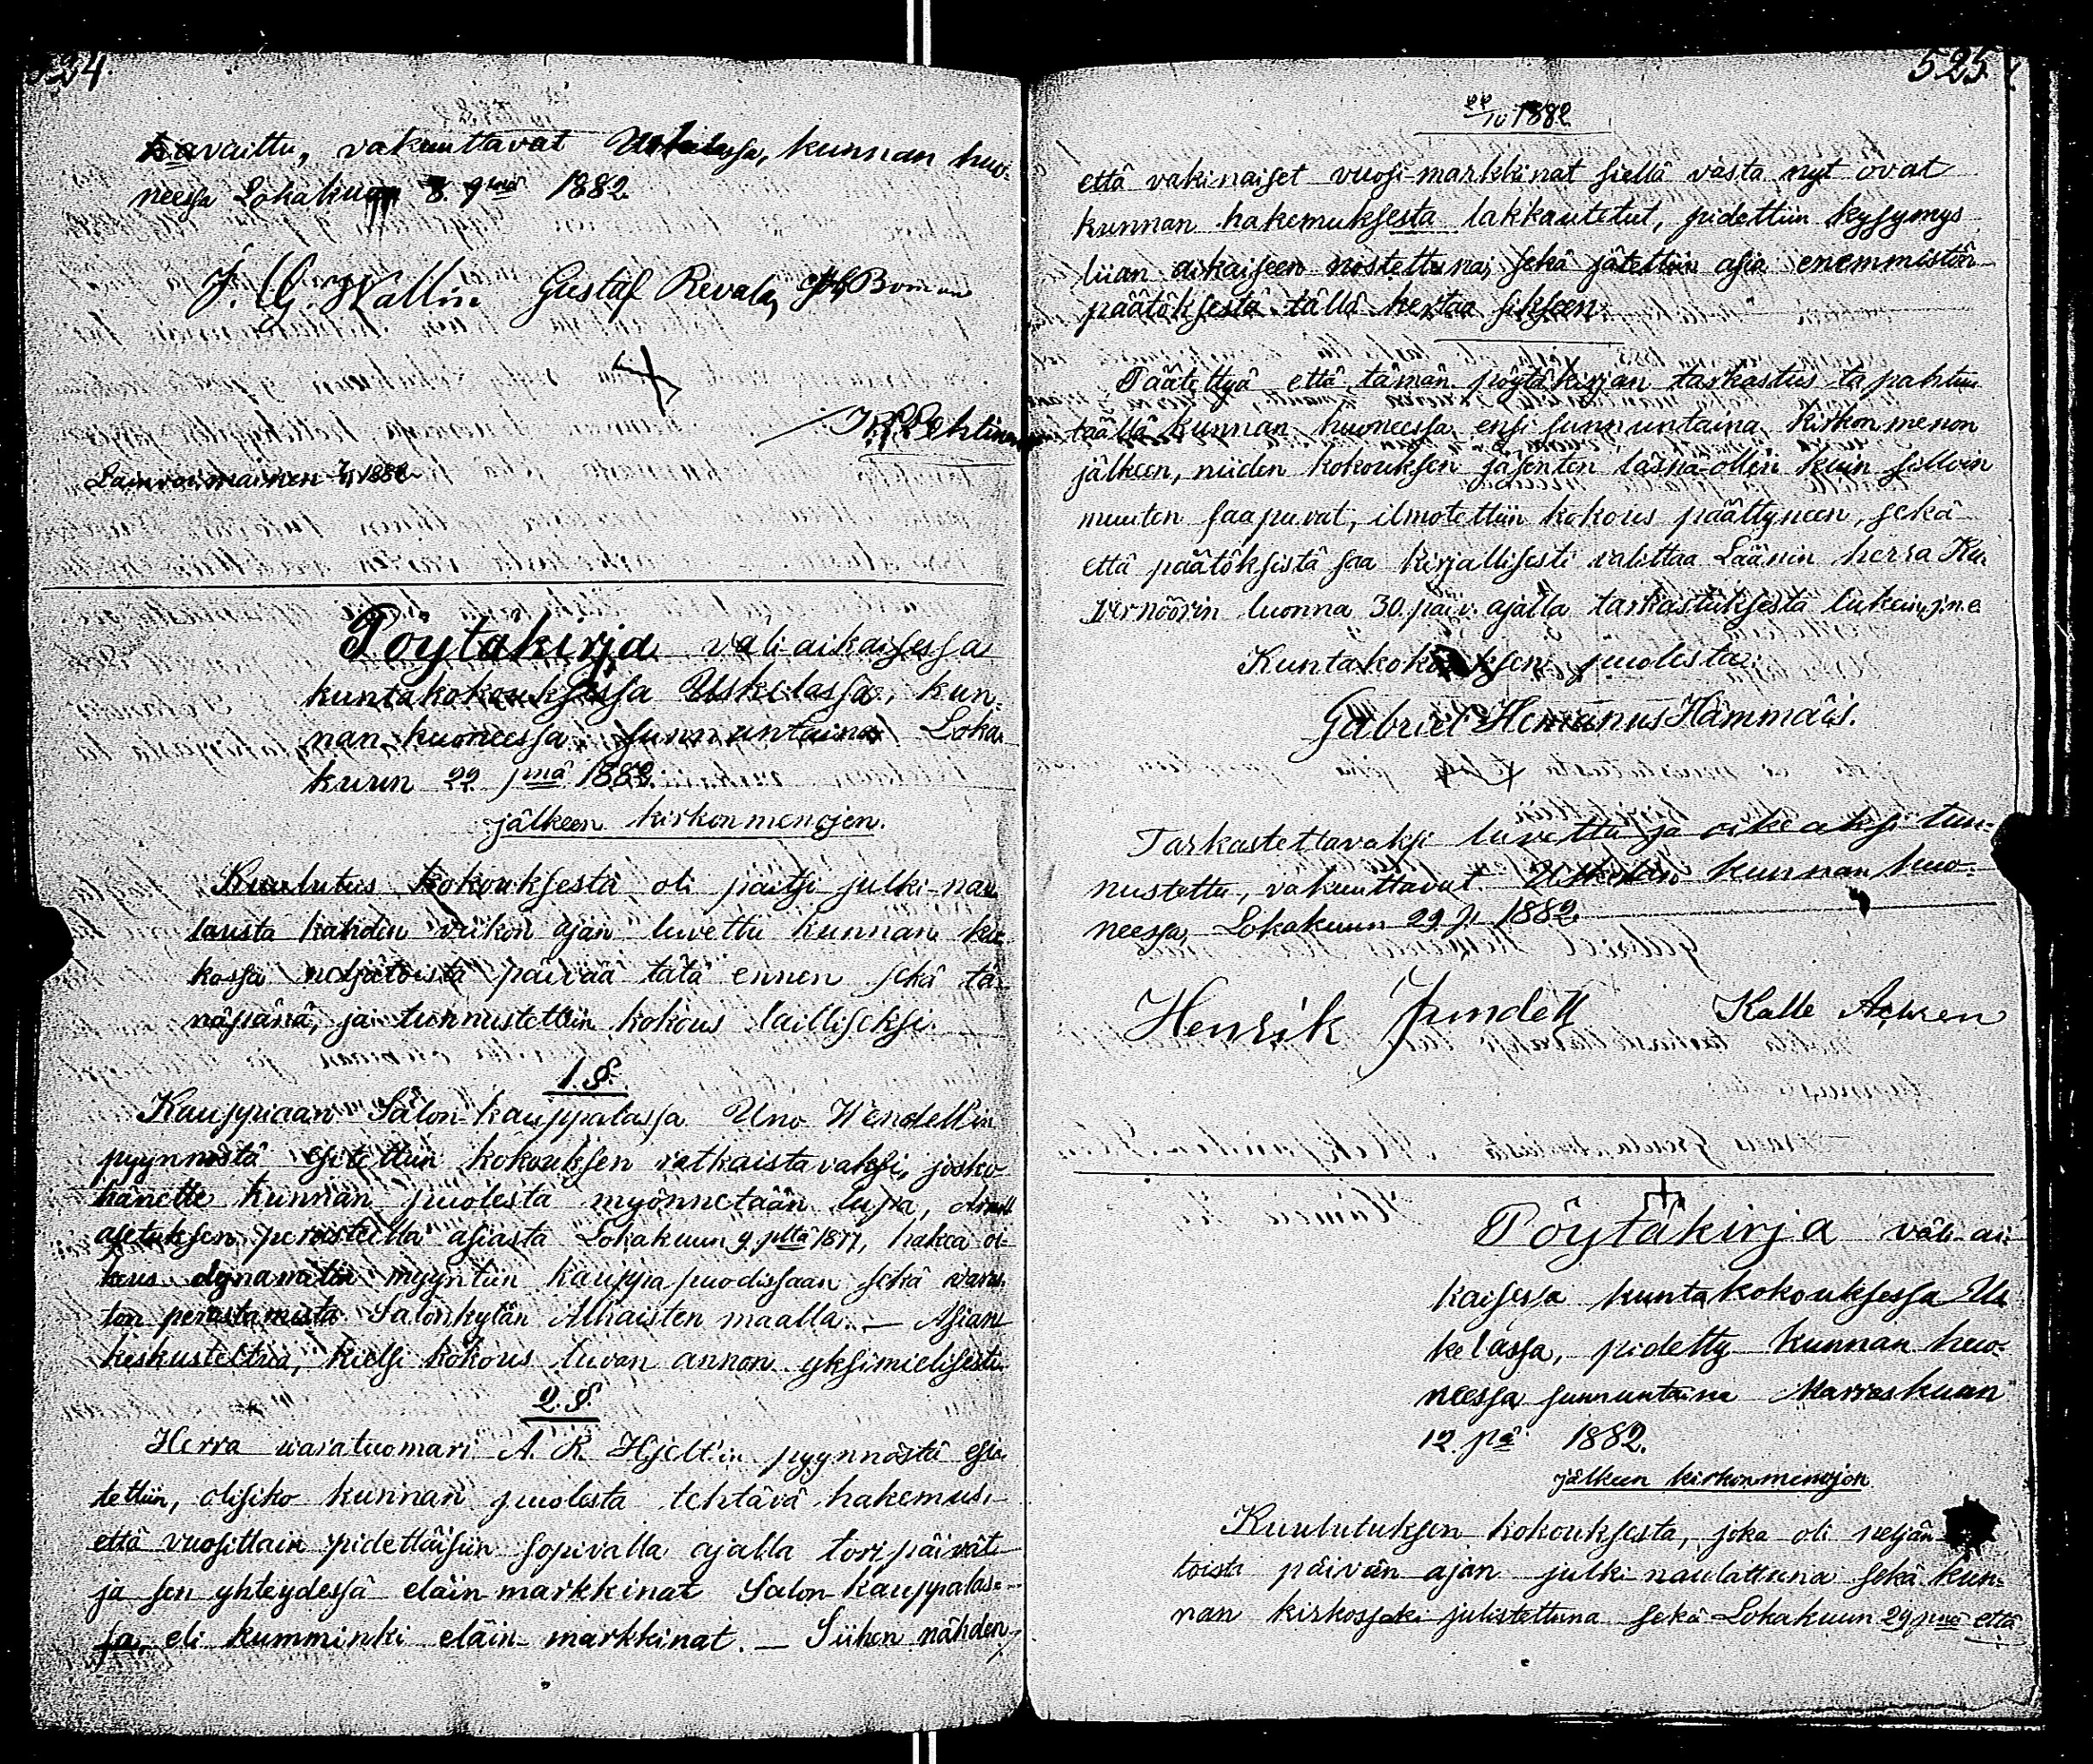 havaittu, vakuuttavat Uskelassa, kunnan huo-
neessa Lokakuun 8. p:nä 1882.
J. G. Wallin Gustaf Revala, Boman
Lainvoimainen 1882
Pöytäkirja väliaikaisessa
kuntakokouksessa Uskelassa, kun-
nan huoneessa sunnuntaina Loka-
kuun 22 pnä 1882.
jälkeen kirkonmenojen.
Kuulutus kokouksesta oli paitsi julki-nau-
lausta kahden viikon ajan luvettu kunnan kir-
kossa neljätoista päivää tätä ennen sekä tä-
näpänä, ja tunnustettiin kokous lailliseksi.
1. §.
Kauppiaan Salon kauppalassa Uno Wendell'in
pyynnöstä esitettiin kokouksen ratkaistavaksi, josko
hänelle kunnan puolesta myönnetään lupa, Arm.
asetuksen perusteilla asiasta Lokakuun 9 pltä 1877, hakea oi-
keus dynamitin myyntiin kauppapuodissaan sekä varas-
ton perustamista Salonkylän Alhaisten maalla. — Asian
keskusteltua, kielsi kokous luvan annon yksimielisesti.
2. §.
Herra varatuomari A. R. Hjelt'in pyynnöstä esi-
tettiin, olisiko kunnan puolesta tehtävä hakemus,
että vuosittain pidettäisiin sopivalla ajalla toripäivät
ja sen yhteydessä eläin markkinat Salon kauppalas-
sa eli kumminki eläin-markkinat. — Siihen nähden,
525
22/10 1882
että vakinaiset vuosi-markkinat siellä vasta nyt ovat
kunnan hakemuksesta lakkautetut, pidettiin kysymys
liian aikaiseen nostettuna, sekä jätettiin asia enemmistön
päätöksestä tällä kertaa sikseen.
Päätettyä että tämän pöytäkirjan tarkastus tapahtuu
täällä kunnan huoneessa ensi sunnuntaina kirkonmenon
jälkeen, niiden kokouksen jäsenten läsnä-ollen kuin silloin
muuten saapuvat, ilmotettiin kokous päättyneen, sekä
että päätöksistä saa kirjallisesti valittaa Läänin herra Ku-
vernöörin luonna 30. päiv. ajalla tarkastuksesta lukein, j.n.e.
Kuntakokouksen puolesta:
Gabriel Hemianus Hammais.
Tarkastettavaksi luvettu ja oikeaksi tun-
nustettu, vakuuttavat. Uskelan kunnan huo-
neessa, Lokakuun 29 p. 1882.
Henrik Jundell Kalle Achren
Pöytäkirja väli-ai-
kaisessa kuntakokouksessa Us-
kelassa, pidetty kunnan huo-
neessa sunnuntaina Marraskuun
12. pä 1882.
jälkeen kirkonmenojen
Kuulutuksen kokouksesta, joka oli neljän-
toista päivän ajan julki naulattuna sekä kun-
nan kirkossaki julistettuna sekä Lokakuun 29 pnä että